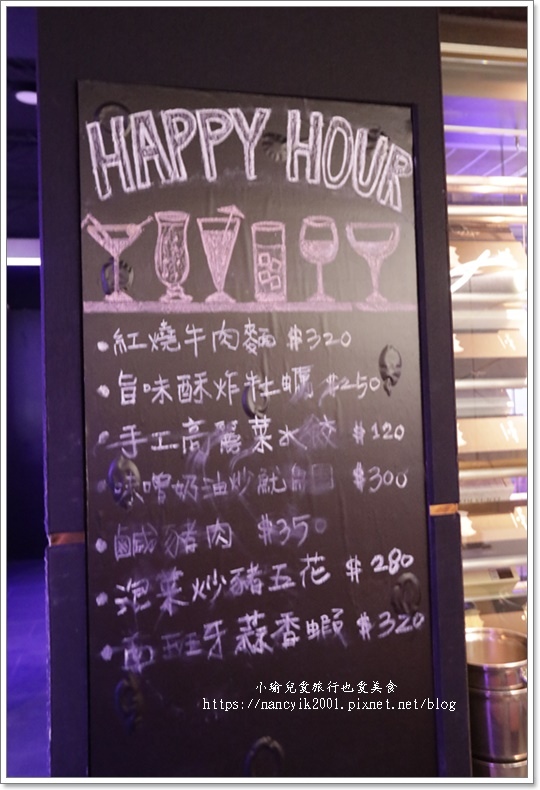 HAPPY HOUR
• 紅燒牛肉麵 $320
• 旨味酥炸牡蠣 $250
• 手工高麗菜水餃 $120
味噌奶油炒魷 $300
• 鹹豬肉 $350
• 泡菜炒豬五花 $280
• 西班牙蒜香蝦 $320
小瑜兒愛旅行也愛美食
https://nancyik2001.pixnet.net/blog